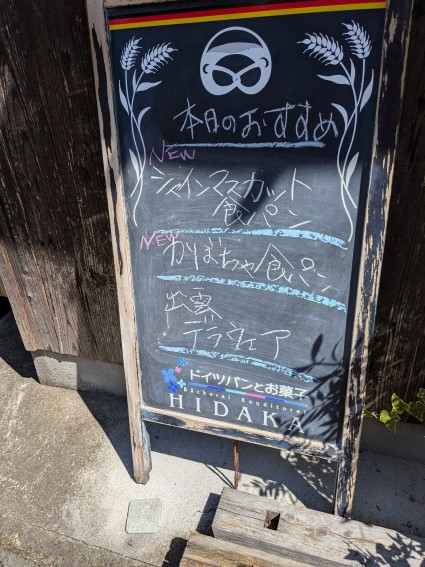 本日のおすすめ
NEW
シャインマスカット
食パン
NEW
かぼちゃ食パン
出雲
テラウェア
ドイツパンとお菓子
Bäckerei Konditorei
HIDAKA